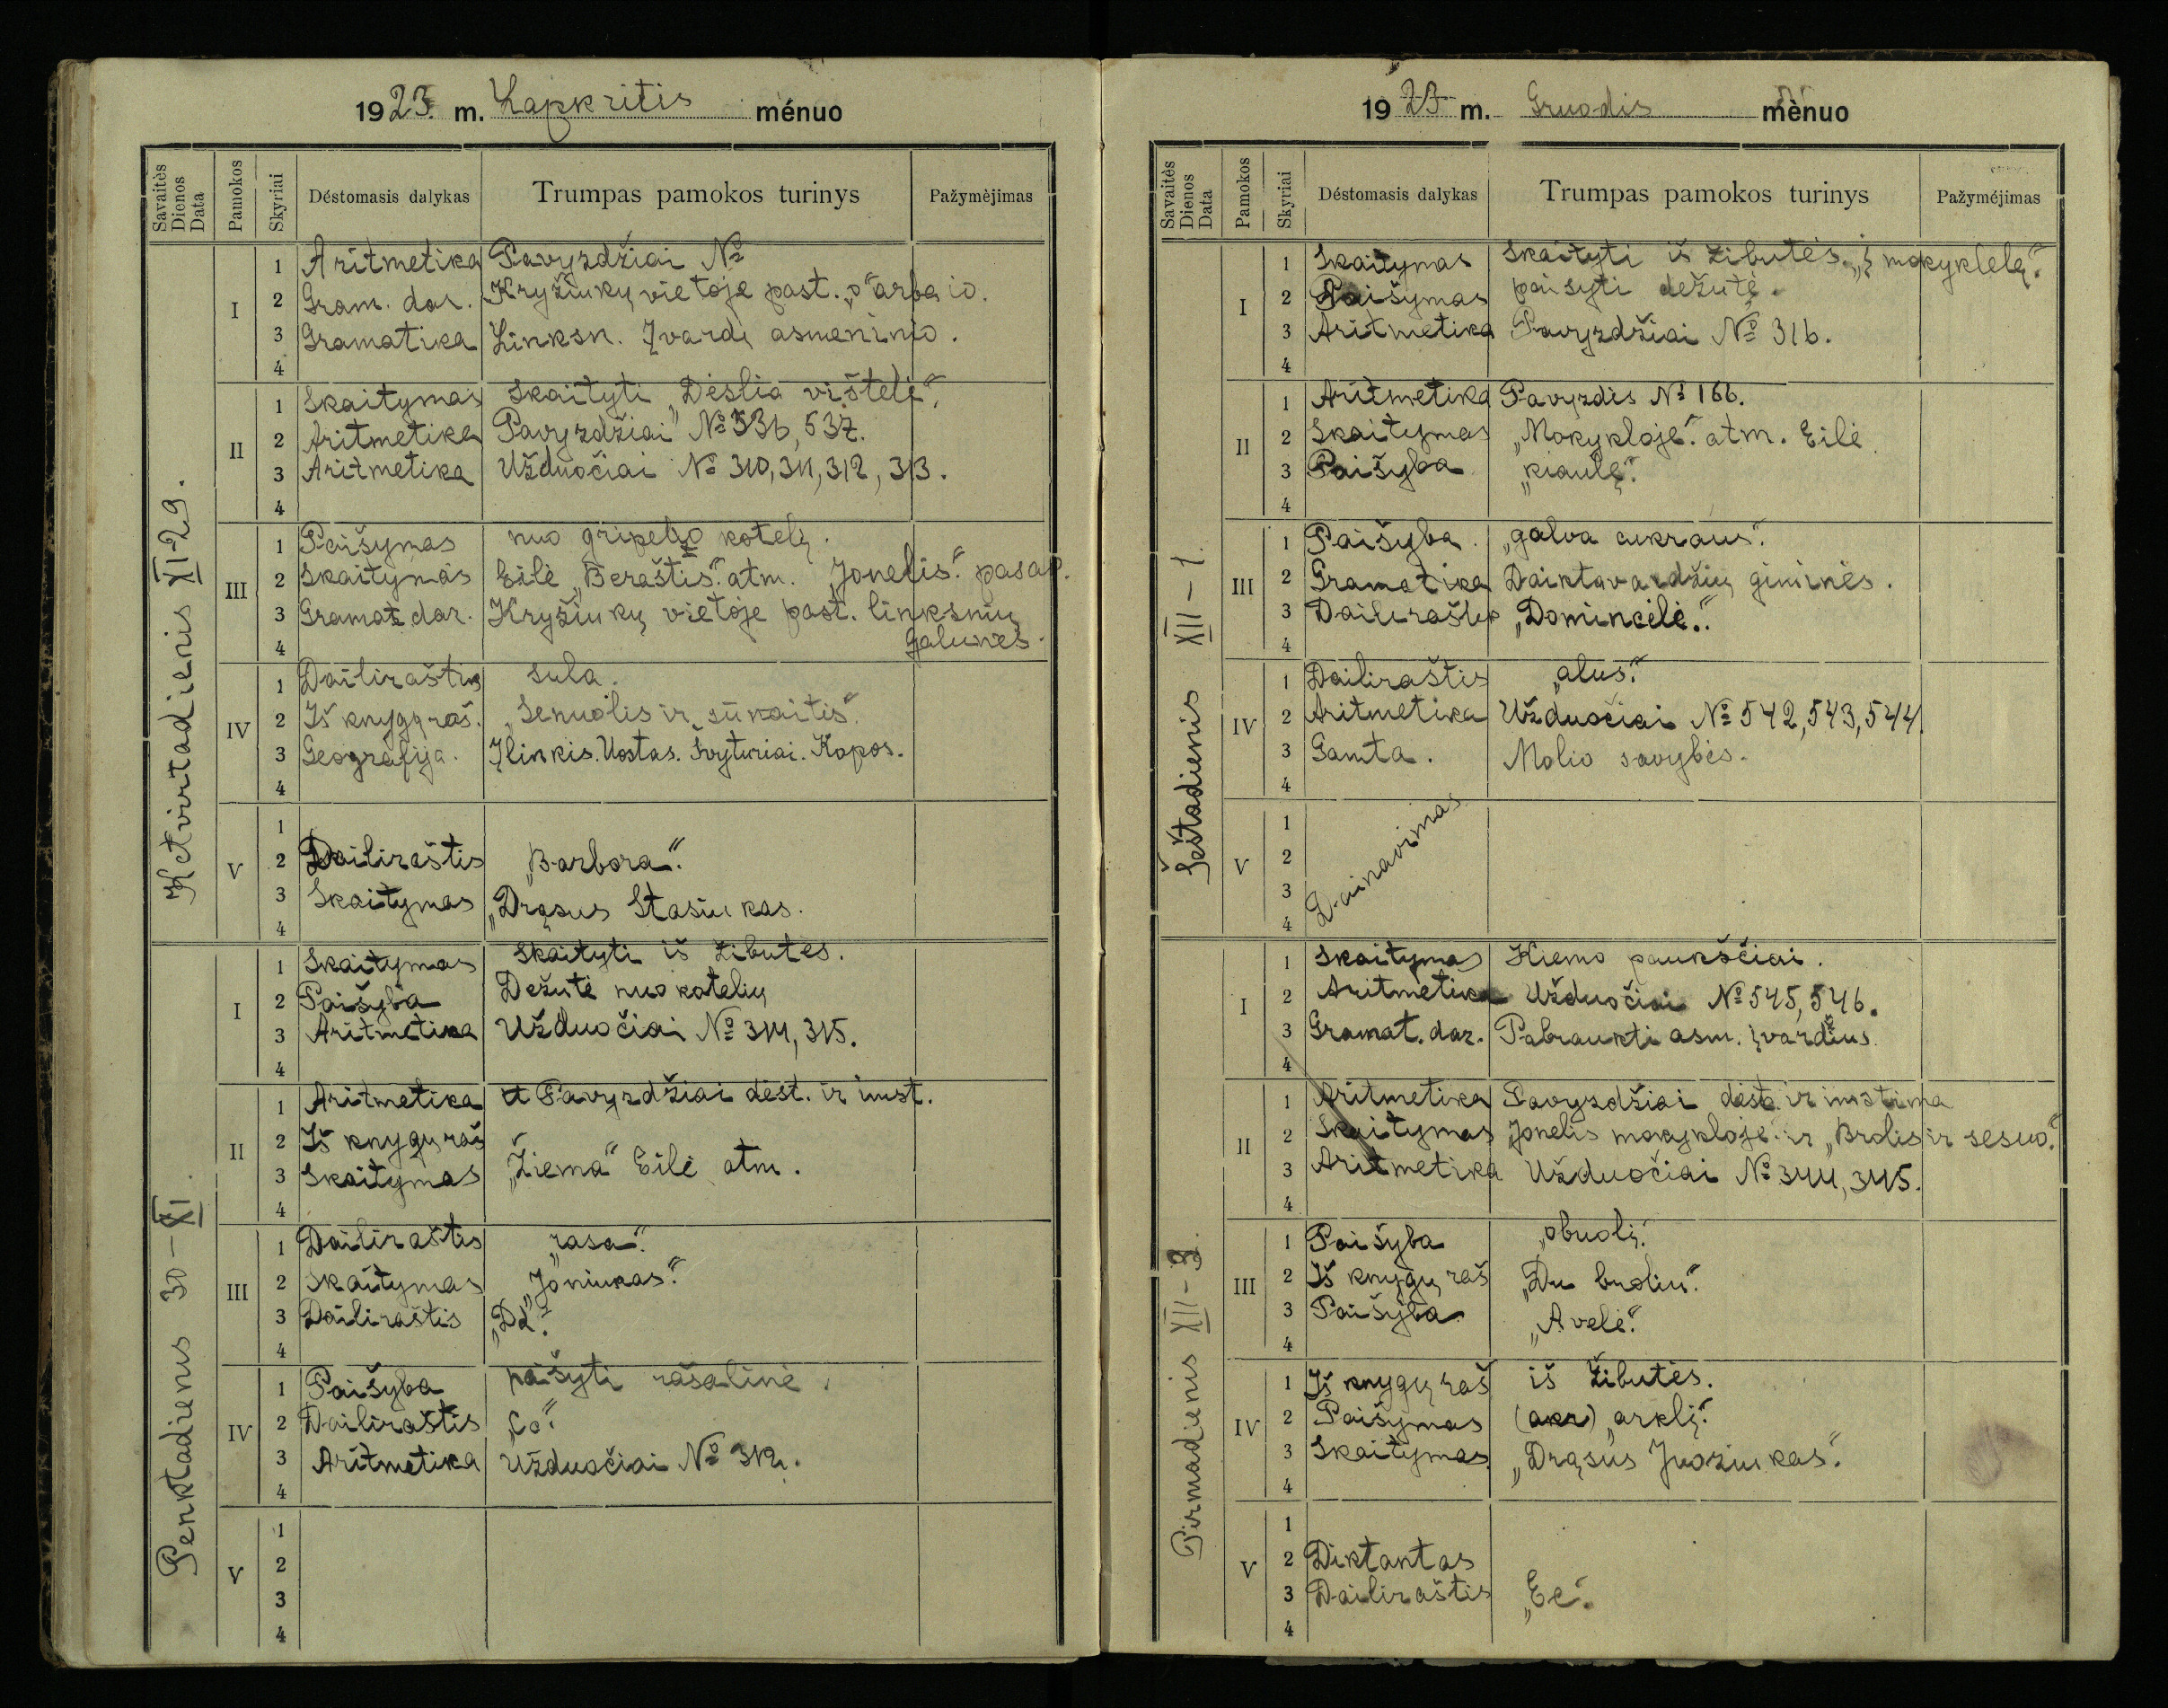 1923. m. Lapkritis ménuo
Savaitės Dienos Data Pamokos Skyriai Déstomasis dalykas Trumpas pamokos turinys Pažymėjimas
Ketvirtadienis XI-29.
I
1 Aritmetika Pavyzdžiai №
2 Gram. dar. Kryžiukų vietoje past. „o" arba io.
3 Gramatika Linksn. Įvardį asmeninio.
4
II
1 Skaitymas Skaityti „Dėslia vištelė".
2 Aritmetika Pavyzdžiai № 536, 537.
3 Aritmetika Užduočiai № 310, 311, 312, 313.
4
III
1 Paišymas nuo gripelio kotelį.
2 Skaitymas Eilė „Beraštis". atm. Jonelis". pasap.
3 Gramat. dar. Kryžiukų vietoje past. linksnių
4 galunes.
IV
1 Dailiraštis sula.
2 Iš knygų raš. „Senuolis ir sūnaitis".
3 Geografija. Įlinkis. Uostas. Švyturiai. Kopos.
4
V
1
2 Dailiraštis „Barbora".
3 Skaitymas „Drąsus Stasiukas.
4
Penktadienis 30-XI.
I
1 Skaitymas Skaityti iš žibutes.
2 Paišyba Dežutė nuo kotelių
3 Aritmetika Užduočiai № 314, 315.
4
II
1 Aritmetika Pavyzdžiai dėst. ir imst.
2 Iš knygų raš
3 Skaitymas „Žiema" Eilė atm.
4
III
1 Dailiraštis „rasa".
2 Skaitymas „Joniukas".
3 Dailiraštis „Dd".
4
IV
1 Paišyba paišyti rašalinė.
2 Dailiraštis „Co".
3 Aritmetika Užduočiai №
4
V
1
2
3
4
1923 m. Gruodis mènuo
Savaitės Dienos Data Pamokos Skyriai Déstomasis dalykas Trumpas pamokos turinys Pažyméjimas
Šeštadienis XII-1.
I
1 Skaitymas Skaityti iš žibutės. „Į mokyklelę".
2 Paišymas paisyti dežutė.
3 Aritmetika Pavyzdžiai № 316.
4
II
1 Aritmetika Pavyzdis № 166.
2 Skaitymas „Mokykloje". atm. Eilė
3 Paišyba „kiaulę".
4
III
1 Paišyba. „galva cukraus".
2 Gramatika Daiktavardžių giminės.
3 Dailiraštis „Domincėlė".
4
IV
1 Dailiraštis „alus".
2 Aritmetika Užduočiai № 542, 543, 544.
3 Gamta. Molio savybės.
4
V
1
2 Dainavimas
3
4
Pirmadienis XII-3.
I
1 Skaitymas Kiemo paukščiai.
2 Aritmetika Užduočiai № 545, 546.
3 Gramat. dar. Pabraukti asm. įvardžius.
4
II
1 Aritmetika Pavyzdžiai dėst. ir imstima
2 Skaitymas Jonelis mokykloje". ir „Brolis ir sesuo".
3 Aritmetika Užduočiai № 344, 345.
4
III
1 Paišyba „obuolį".
2 Iš knygų raš „Du broliu".
3 Paišyba „Avelė".
4
IV
1 Iš knygų raš iš žibutės.
2 Paišymas (akr) „arklį".
3 Skaitymas. „Drąsus Juoziukas".
4
V
1
2 Diktantas
3 Dailiraštis „Ee".
4